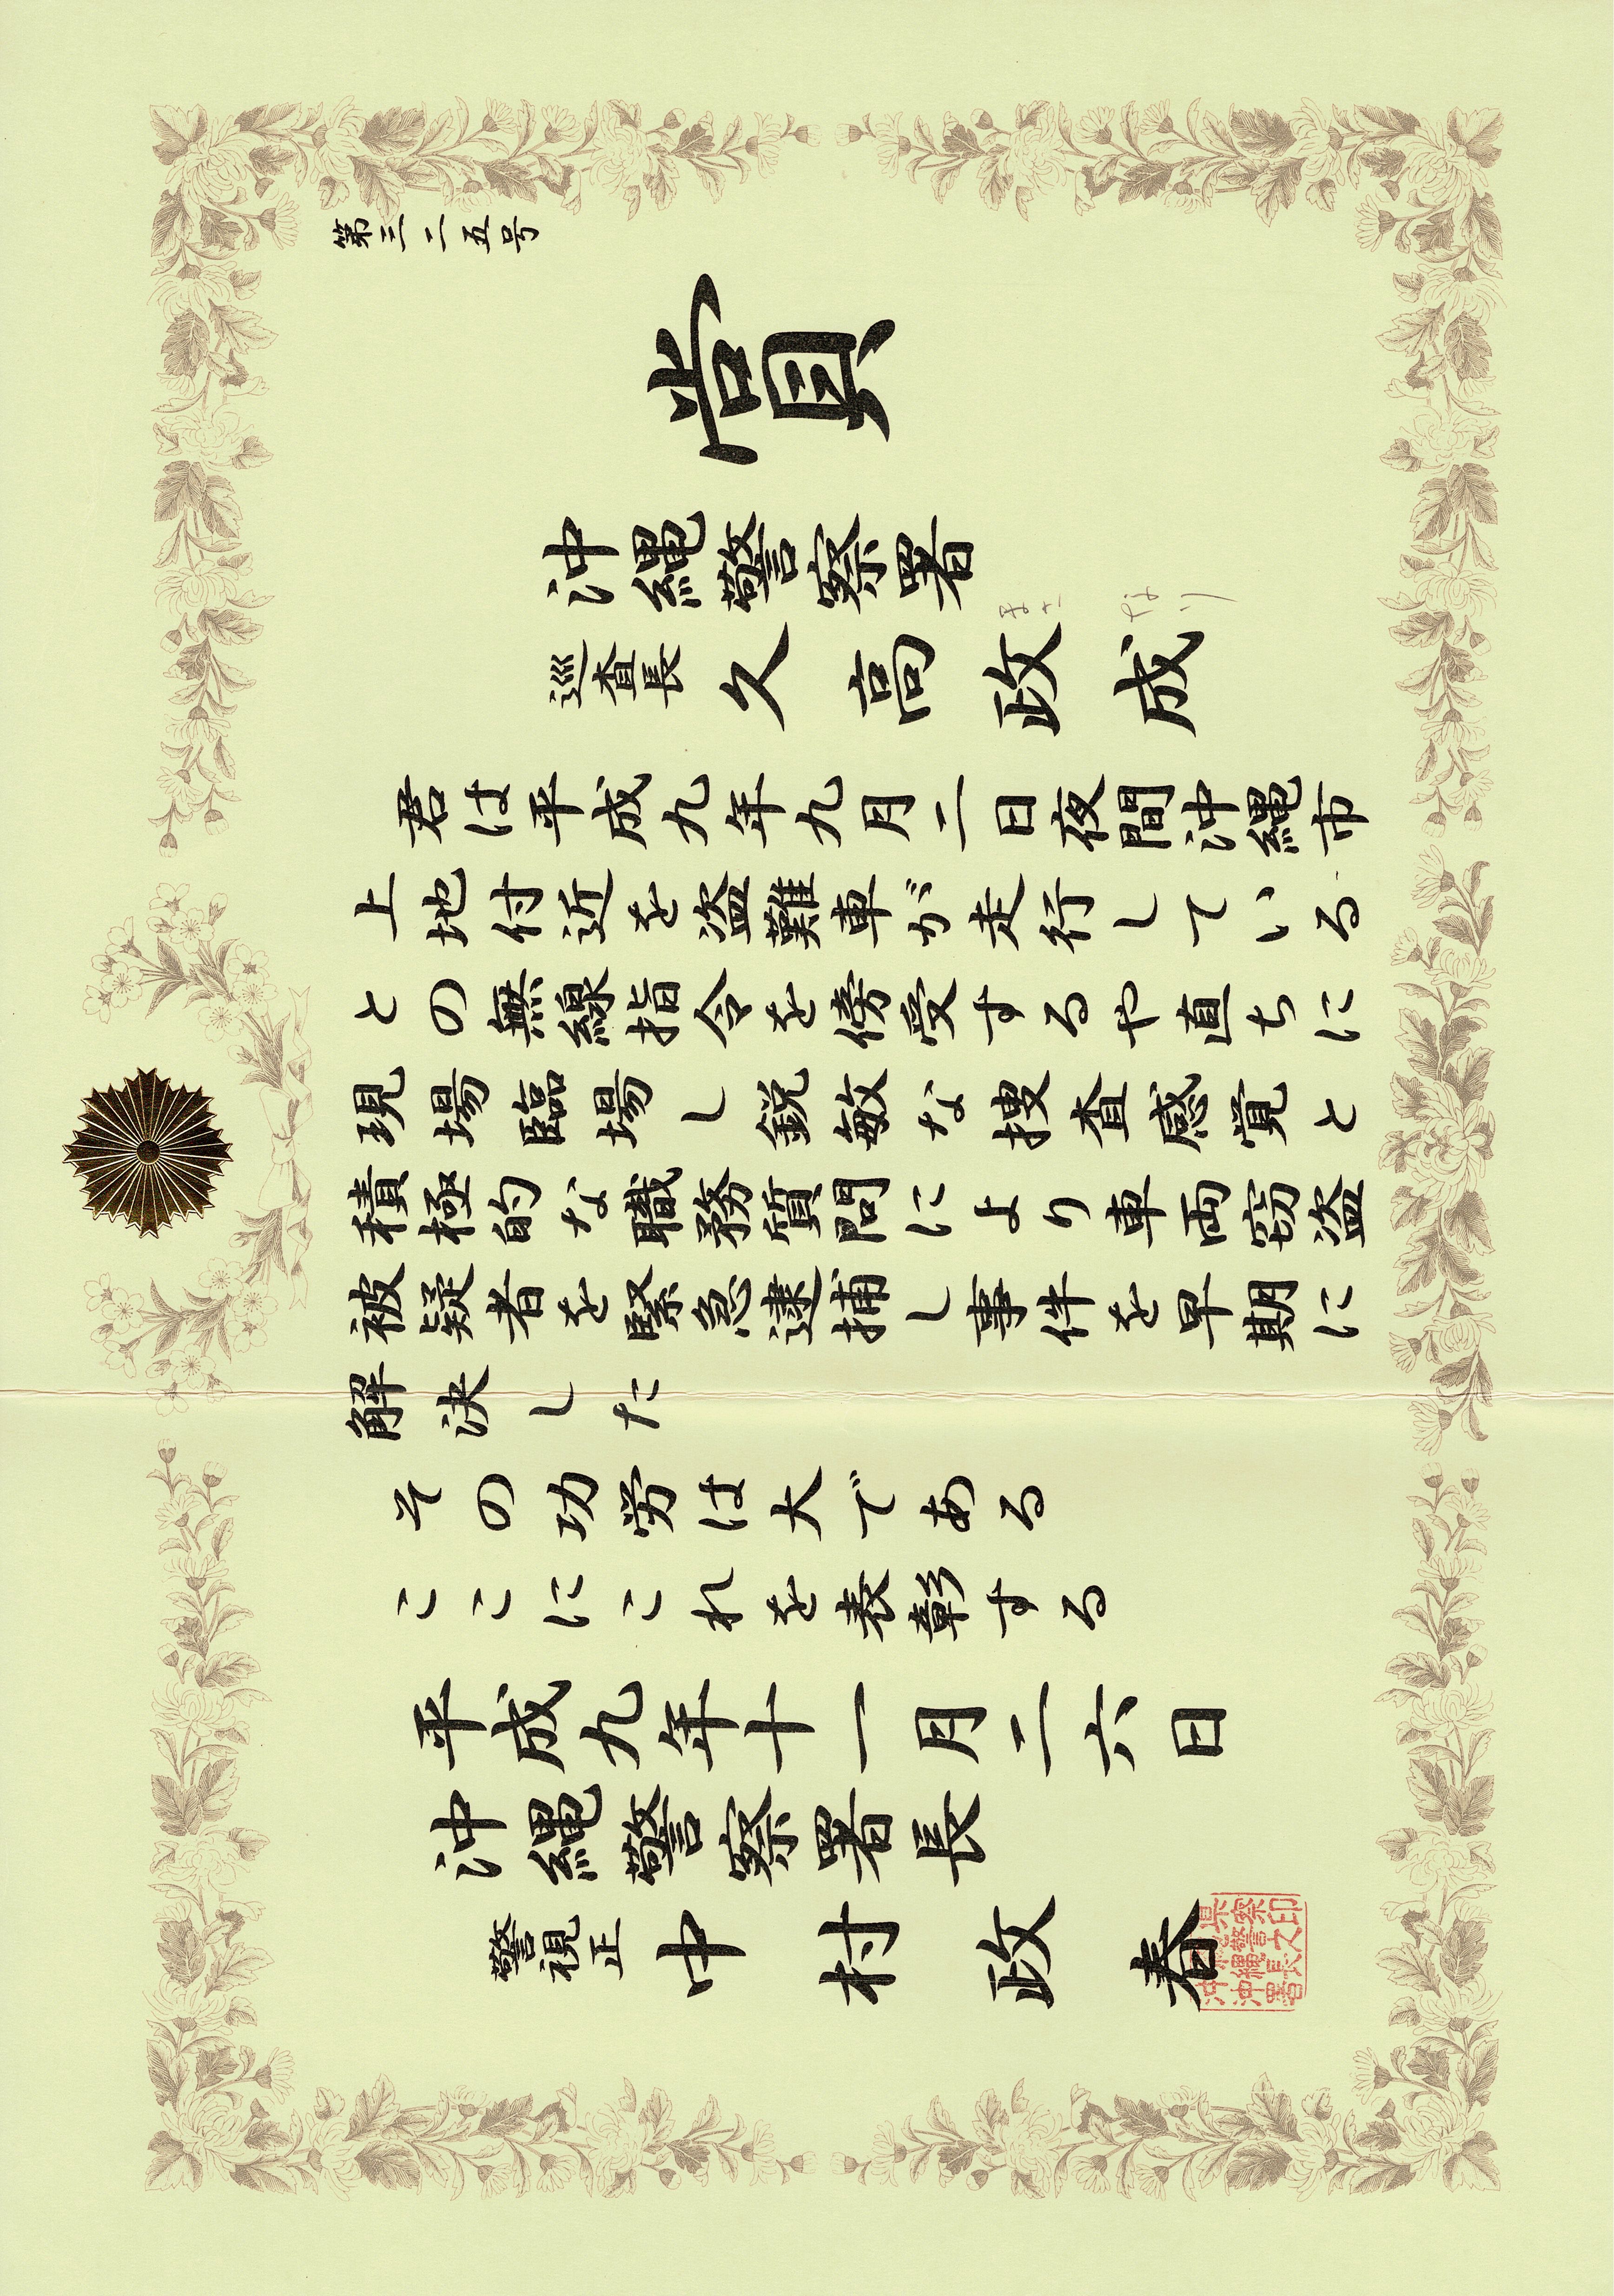 第三二五号
賞
沖縄警察署
巡査長 久高政成
まさ なり
君は平成九年九月二日夜間沖縄市
上地付近を盗難車が走行している
との無線指令を傍受するや直ちに
現場臨場し鋭敏な捜査感覚と
積極的な職務質問により車両窃盗
被疑者を緊急逮捕し事件を早期に
解決した
その功労は大である
ここにこれを表彰する
平成九年十一月二六日
沖縄警察署長
警視正 中村政春
沖縄県
沖縄警察
署長之印